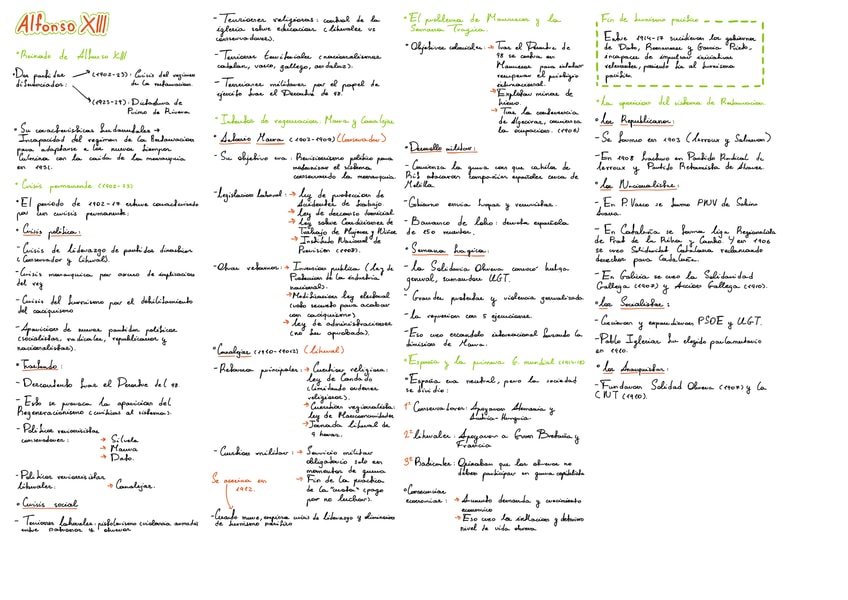 Alfonso XIII
• Reinado de Alfonso XIII
• Dos partidos diferenciados: → (1902-23): Crisis del regimen de la restauracion
→ (1923-29): Dictadura de Primo de Rivera
• Su caracteristicas fundamentales →
Incapacidad del regimen de la Restauracion
para adaptarse a los nuevos tiempos
Culmina con la caida de la monarquia
en 1931.
• Crisis permanente (1902-23)
• El periodo de 1902-17 estuvo caracterizado
por una crisis permanente:
• Crisis politica:
- Crisis de liderazgo de partidos dinasticos
(Conservador y liberal).
- Crisis monarquica por
del rey
- Crisis del turnismo por el debilitamiento
del caciquismo
- Aparicion de nuevos partidos politicos
(socialistas, radicales, republicanos y
nacionalistas).
• Trasfondo:
- Descontento tras el Desastre del 98.
- Esto se provoca la aparicion del
Regeneracionismo (criticas al sistema).
- Politicos
conservadores: → Silvela
→ Maura
→ Dato.
- Politicos
liberales: → Canalejas.
• Crisis social
- Tensiones laborales: pistolerismo (violencia armada
entre patronos y obreros
- Tensiones religiosas: control de la
iglesia sobre educacion (liberales vs
conservadores).
- Tensiones territoriales (nacionalismos
catalan, vasco, gallego, andaluz).
- Tensiones militares por el papel de
ejercito tras el Desastre de 98.
• Intentos de regeneracion: Maura y Canalejas
• Antonio Maura (1907-1909) (Conservador)
- Su objetivo era: Revisionismo politico para
modernizar el sistema
conservando la monarquia.
- Legislacion laboral: → ley de proteccion de
accidentes de trabajo
→ ley de descanso dominical
→ ley sobre Condiciones de
Trabajo de Mujeres y Niños
→ Instituto Nacional de
Prevision (1908).
- Otras reformas: → Inversion publica (ley de
Proteccion de la industria
nacional).
→ Modificacion ley electoral
(voto secreto para acabar
con caciquismo)
→ ley de administraciones
(no fue aprobada).
• Canalejas (1910-1912) (liberal)
- Reformas principales: → Cuestion religiosa:
ley de Candado
(limitando ordenes
religiosas).
→ Cuestion regionalista:
ley de Mancomunidades
→ Jornada laboral de
9 horas.
- Cuestion militar: → Servicio militar
obligatorio solo en
momentos de guerra
→ Fin de la practica
de la "cuota" (pago
por no luchar).
Se asesina en
1912.
- Cuando muere, empieza crisis de liderazgo y
de turnismo pacifico
• El problema de Marruecos y la
Semana Tragica.
• Objetivos coloniales: → Tras el Desastre de
98 se centra en
Marruecos para intentar
recuperar el prestigio
internacional.
→ Explotar minas de
hierro.
→ Tras la conferencia
de Algeciras, comienza
la ocupacion. (1906)
• Desarrollo militar:
- Comienza la guerra con que cabilas de
Rif atacaron compañias españolas cerca de
Melilla.
- Gobierno envia tropas y reservistas.
- Barranco de lobo: derrota española
de 150 muertos.
• Semana tragica:
- la Solidaria Obrera convoco huelga
general, sumandose UGT.
- Grandes protestas y violencia generalizada.
- la represion con 5 ejecuciones.
- Eso creo escandalo internacional forzando la
dimision de Maura.
• España y la primera G. mundial (1914-18)
• España era neutral, pero la sociedad
se dividio:
1º Conservadores: Apoyaron Alemania y
Austria-Hungria
2º liberales: Apoyaron a Gran Bretaña y
Francia
3º Radicales: Opinaban que los obreros no
deben participar en guerra capitalista
• Consecuencias
economicas: → Aumento demanda y crecimiento
economico
→ Eso creo la inflacion y deterioro
nivel de vida obrera.
Fin de turnismo pacifico
Entre 1914-17 sucedieron los gobiernos
de Dato, Romanones y Garcia Prieto,
incapaces de impulsar iniciativas
relevantes, poniendo fin al turnismo
pacifico.
• La oposicion del sistema de Restauracion.
• los Republicanos:
- Se formo en 1903 (lerroux y Salmeron)
- En 1908 tuvieron en Partido Radical de
lerroux y Partido Reformista de Alvarez.
• los Nacionalistas:
- En P. Vasco se forma PNV de Sabino
Arana.
- En Cataluña se forma liga Regionalista
de Prat de la Riba y Cambó. Y en 1906
se creo Solidaridad Catalana reclamando
derechos para Cataluña.
- En Galicia se creo la Solidaridad
Gallega (1907) y Accion Gallega (1910).
• los Socialistas:
- Crecieron y expandieron PSOE y UGT.
- Pablo Iglesias fue elegido parlamentario
en 1910.
• los Anarquistas:
- Fundaron Solidad Obrera (1907) y la
CNT (1910).